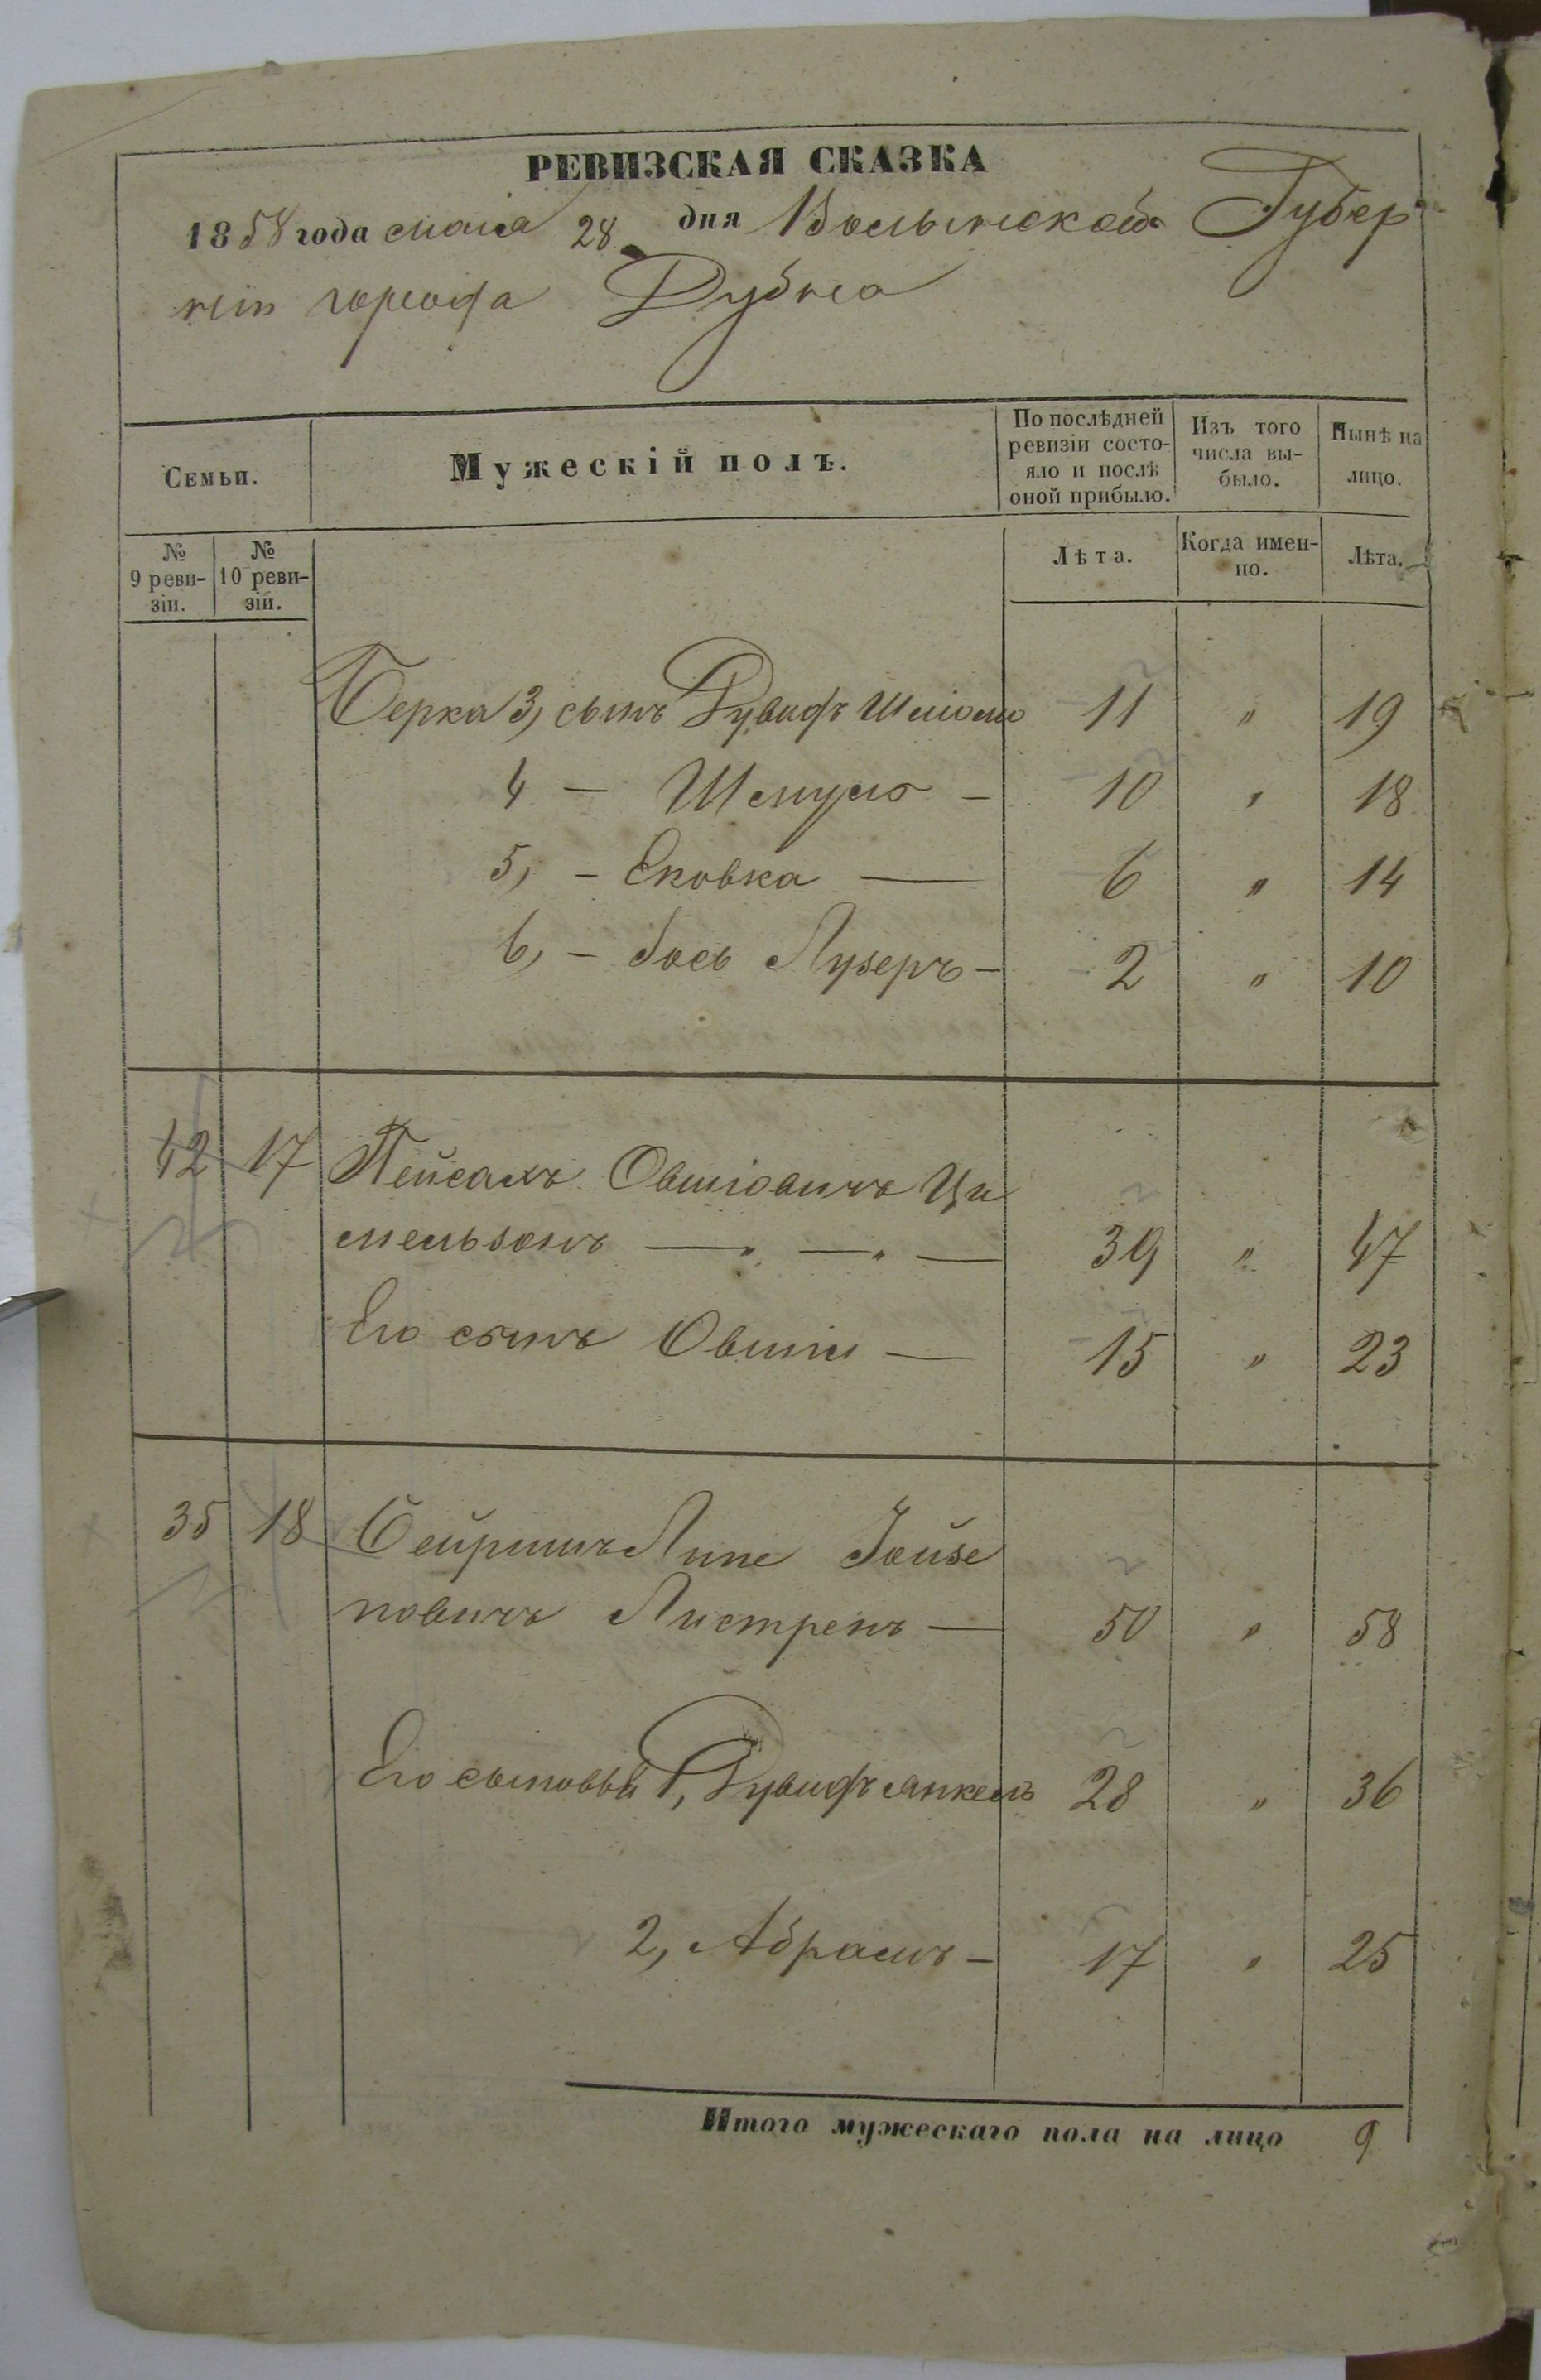 РЕВИЗСКАЯ СКАЗКА
1858 года маія 28 дня Волынской Губер
ніи города Дубна
Семьи.
Мужескій полъ.
По послѣдней ревизіи состо-
яло и послѣ оной прибыло.
Изъ того числа вы-
было.
Нынѣ на лицо.
№ 9 реви-
зіи.
№ 10 реви-
зіи.
Лѣта.
Когда имен-
но.
Лѣта.
Берка 3, сынъ Дувидъ Шлiома 11 " 19
4 — Шмуль — 10 " 18
5, — Ековка — 6 " 14
6, — Іось Лузеръ — 2 " 10
42 17 Пейсахъ Овшіовичъ Ци
мельзонъ — " — " — 39 " 47
Его сынъ Овшій — 15 " 23
35 18 Сейришъ Липе Іойзе
повичъ Листренъ — 50 " 58
Его сыновья 1, Дувидъ Янкель 28 " 36
2, Абрамъ — 17 " 25
Итого мужескаго пола на лицо 9